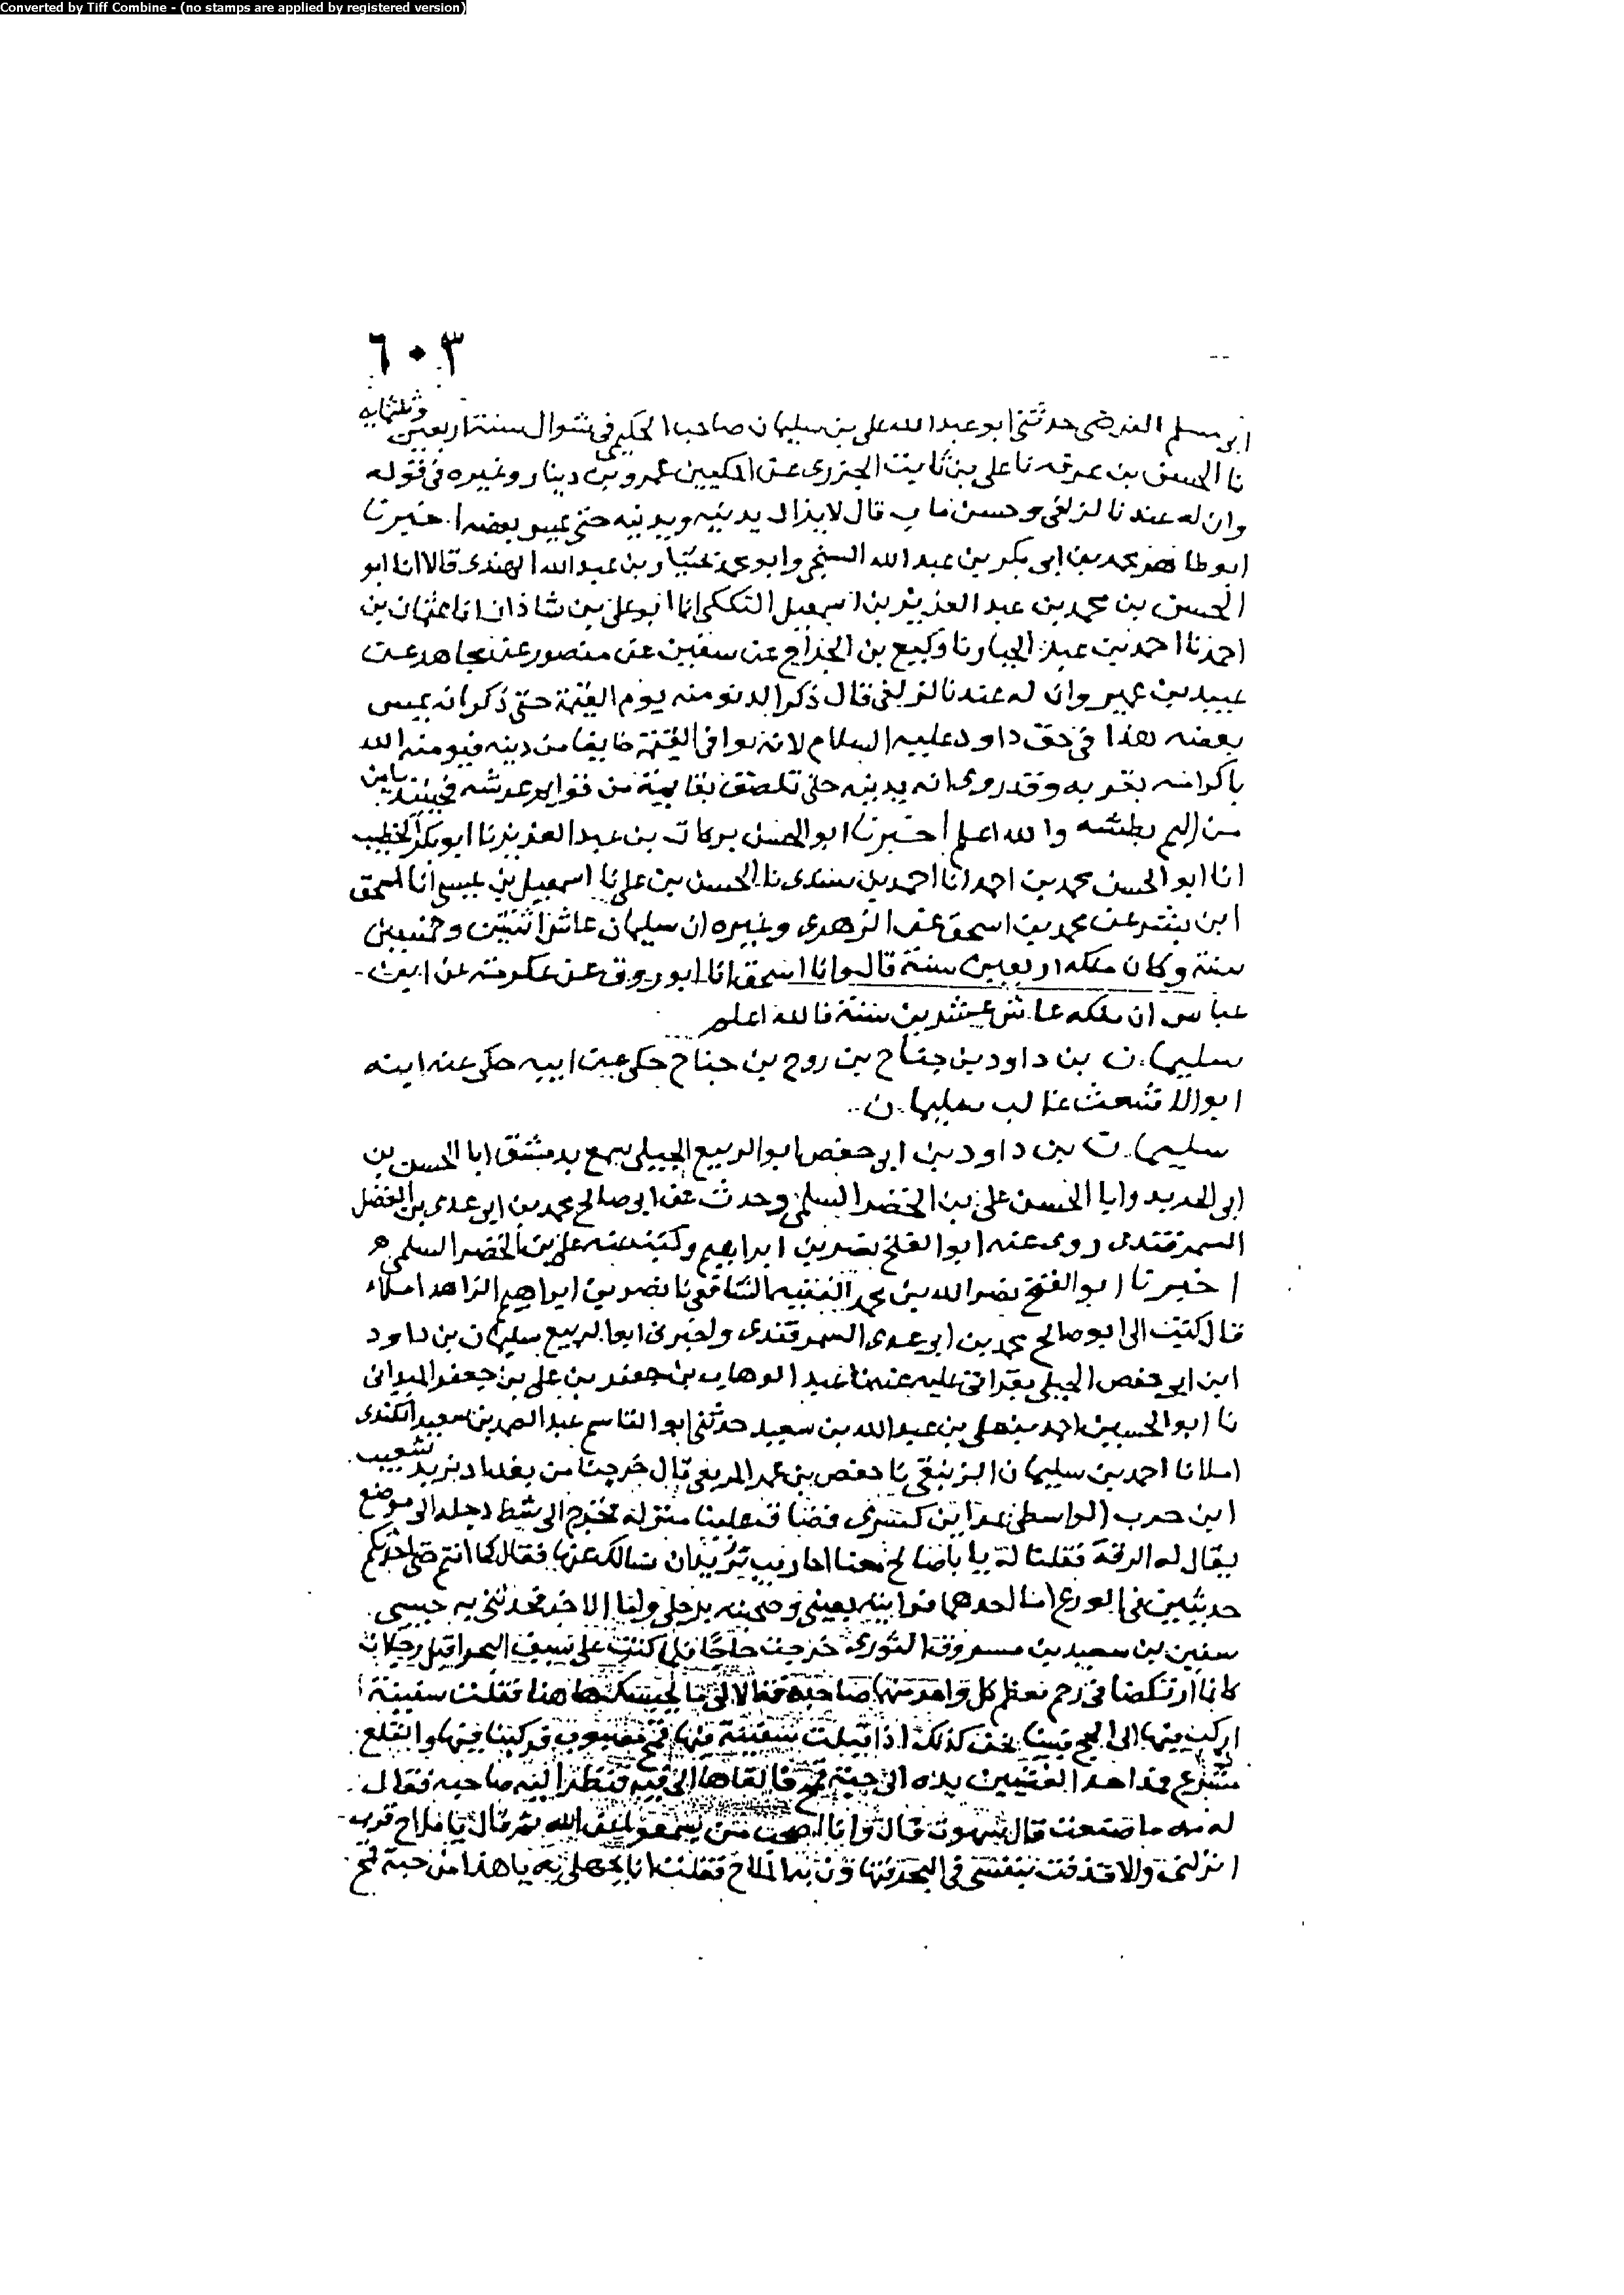 Converted by Tiff Combine - (no stamps are applied by registered version)
٦٠٣
ابي مسلم الفرضي حدثني ابو عبد الله علي بن سليمان صاحب الحكيمي في شوال سنة اربعين وثلثمايه
نا الحسن بن عرفه نا علي بن ثابت الجزري عن المكيين عمرو بن دينار وغيره في قوله
وان له عندنا لزلفى وحسن ماب قال لا يزال يدنيه ويدنيه حتى يمس بعضه اخبرنا
ابو طاهر محمد بن ابي بكر بن عبد الله السنجي وابو محمد بختيار بن عبد الله الهندي قالا انا ابو
الحسن بن محمد بن عبد العزيز بن اسمعيل التككي انا ابو علي بن شاذان انا عثمان بن
احمد نا احمد بن عبد الجبار نا وكيع بن الجراح عن سفين عن منصور عن مجاهد عن
عبيد بن عمير وان له عندنا لزلفى قال ذكر الدنو منه يوم القيمة حتى ذكر انه يمس
بعضه هذا في حق داود عليه السلام لانه يوافي القيمة خايفا من دينه فيومنه الله
باكرامه بقربه وقد روي انه يدنيه حتى تلصق بقايمة من قوايم عرشه فحينئذ يامن
من اليم بطشه والله اعلم اخبرنا ابو الحسن بركات بن عبد العزيز نا ابو بكر الخطيب
انا ابو الحسن محمد بن احمد انا احمد بن سندي نا الحسن بن علي نا اسمعيل بن عيسى انا اسحق
ابن بشر عن محمد بن اسحق عن الزهري وغيره ان سليمان عاش اثنتين وخمسين
سنة وكان ملكه اربعين سنة قالوا انا اسحق انا ابو روق عن عكرمة عن ابن
عباس ان ملكه عاش عشرين سنة فالله اعلم
سليمان بن داود بن جناح بن روح بن جناح حكى عن ابيه حكى عنه ابنه
ابو الاشعث غالب سليمان
سليمان بن داود بن ابي حفص ابو الربيع الجبيلي سمع بدمشق ابا الحسن بن
ابي الحديد وابا الحسن علي بن الخضر السلمي وحدث عن ابي صالح محمد بن ابي عدي بن الفضل
السمرقندي روى عنه ابو الفتح نصر بن ابراهيم وكتب عنه علي بن الخضر السلمي
اخبرنا ابو الفتح نصر الله بن محمد الفقيه الشافعي نا نصر بن ابراهيم الزاهد املاء
قال كتب الى ابو صالح محمد بن ابي عدي السمرقندي واخبرني ابو الربيع سليمان بن داود
ابن ابي حفص الجبلي بقراتي عليه عنه نا عبد الوهاب بن جعفر بن علي بن جعفر الميداني
نا ابو الحسين احمد بن علي بن عبد الله بن سعيد حدثني ابو القاسم عبد الصمد بن سعيد الكندي
املا نا احمد بن سليمان الزنبقي نا حفص بن عمر قال خرجنا من بغداد نريد شعيب
ابن حرب الواسطي كسرى منزله فخرج الى شط دجله الى موضع
يقال له الرقة فقلنا له يا با صالح معنا احاديث نريد ان نسالك عنها فقال كما انتم حتى احدثكم
حديثين في الورع اما احدهما فرايته بعيني برجلي واما الاخر فحدثني به حبيبي
سفين بن سعيد بن مسروق الثوري خرجت حاجا فلما كنت على سيف البحر اقبل رجلان
كانما ارتكضا في رحم يعظم كل واحد منهما صاحبه فقالا لي ما يحبسك هاهنا فقلت سفينة
اركب فيها الى الحج فبينا نحن كذلك اذ اقبلت سفينة فيها قمح فركبنا فيها واقلع
فمد احد الفتيين يده الى حبة قمح فالقاها الى فيه فنظر اليه صاحبه فقال
له مه ما صنعت قال سهوت قال وانا الله ثم قال يا ملاح قرب
انزلني والا قذفت بنفسي في البحر الملاح فقلت يا هذا من حبة قمح